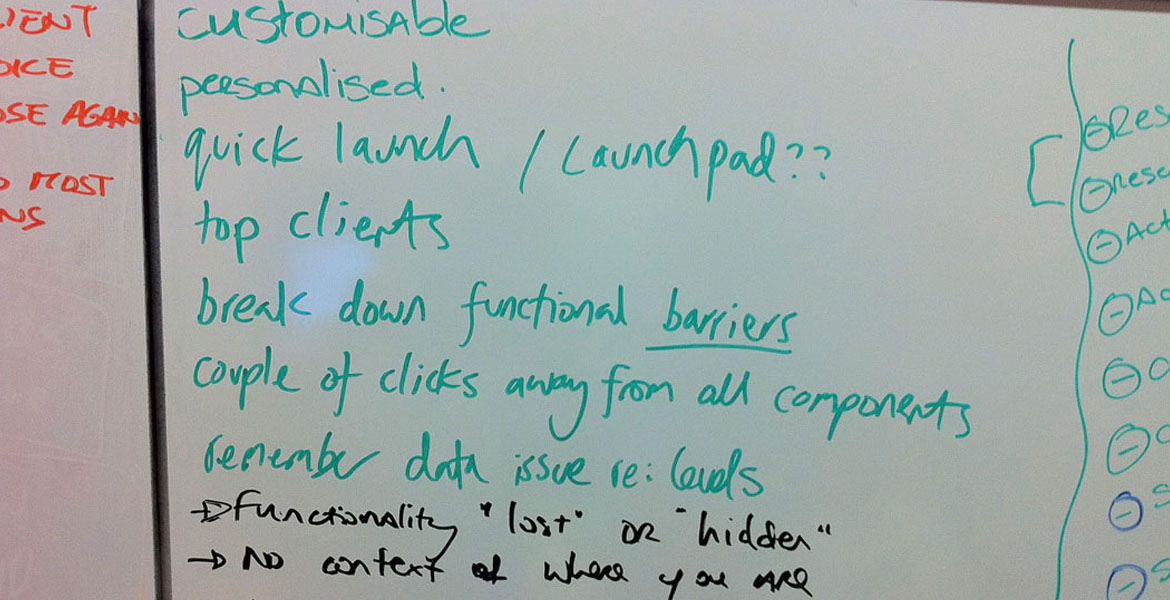 customisable
personalised.
quick launch / Launchpad??
top clients
break down functional barriers
couple of clicks away from all components
remember data issue re: levels
→ Functionality "lost" or "hidden"
→ No context of where you are
AGAIN
MOST